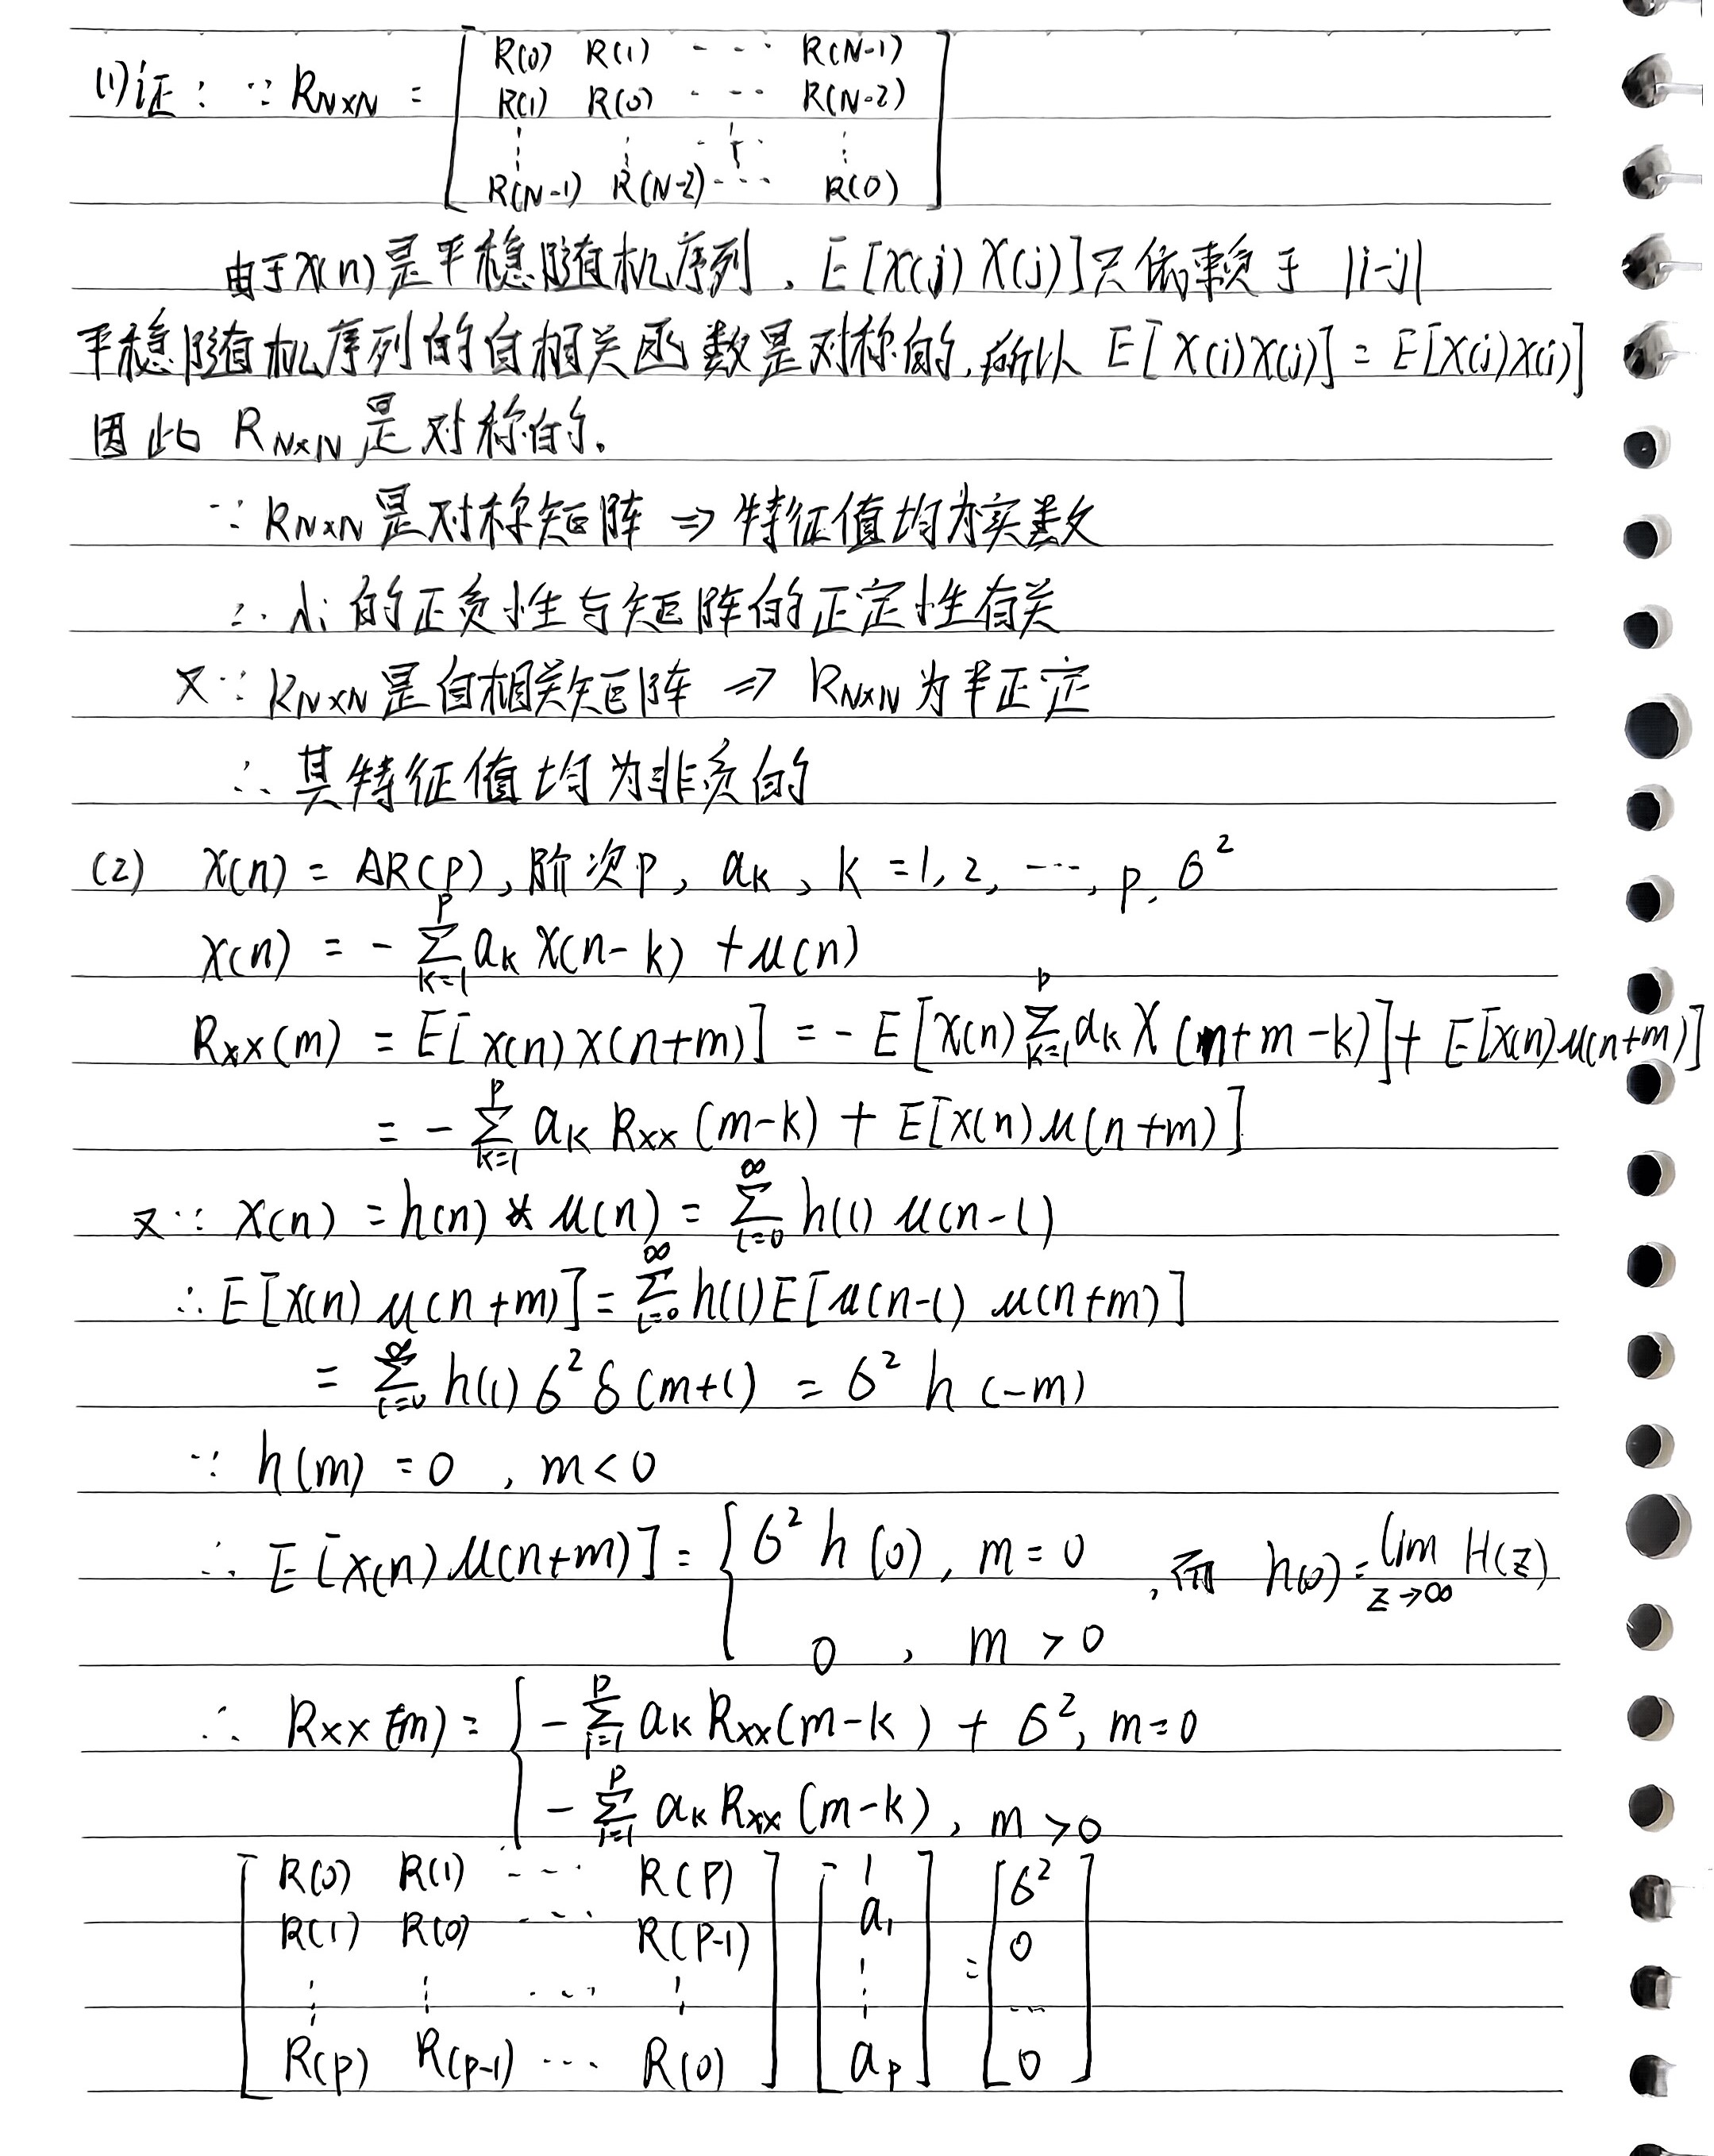 (1)证：∵ R_{N×N} = [ R(0) R(1) ··· R(N-1)
R(1) R(0) ··· R(N-2)
⋮ ⋮ ⋱ ⋮
R(N-1) R(N-2) ··· R(0) ]
由于X(n)是平稳随机序列，E[X(j)X(j)]只依赖于 |i-j|
平稳随机序列的自相关函数是对称的，所以 E[X(i)X(j)] = E[X(j)X(i)]
因此 R_{N×N} 是对称的。
∵ R_{N×N} 是对称矩阵 ⇒ 特征值均为实数
∴ λi 的正负性与矩阵的正定性有关
又∵ R_{N×N} 是自相关矩阵 ⇒ R_{N×N} 为半正定
∴ 其特征值均为非负的
(2) X(n) = AR(p), 阶次p, a_k, k = 1, 2, ···, p. σ²
X(n) = - ∑_{k=1}^{p} a_k X(n-k) + u(n)
R_{xx}(m) = E[x(n)x(n+m)] = - E[x(n) ∑_{k=1}^{p} a_k X(n+m-k)] + E[x(n)u(n+m)]
= - ∑_{k=1}^{p} a_k R_{xx}(m-k) + E[x(n)u(n+m)]
又∵ X(n) = h(n) * u(n) = ∑_{l=0}^{∞} h(l) u(n-l)
∴ E[x(n)u(n+m)] = ∑_{l=0}^{∞} h(l)E[u(n-l)u(n+m)]
= ∑_{l=0}^{∞} h(l)σ²δ(m+l) = σ² h(-m)
∵ h(m) = 0 , m<0
∴ E[x(n)u(n+m)] = { σ² h(0), m = 0 , 而 h(0) = lim_{z→∞} H(z)
0 , m > 0
∴ R_{xx}(m) = { - ∑_{i=1}^{p} a_k R_{xx}(m-k) + σ², m=0
- ∑_{i=1}^{p} a_k R_{xx}(m-k), m>0
[ R(0) R(1) ··· R(P) ] [ 1 ] = [ σ² ]
R(1) R(0) ··· R(P-1) a_1 0
⋮ ⋮ ··· ⋮ ⋮ ···
R(p) R(p-1) ··· R(0) a_p 0